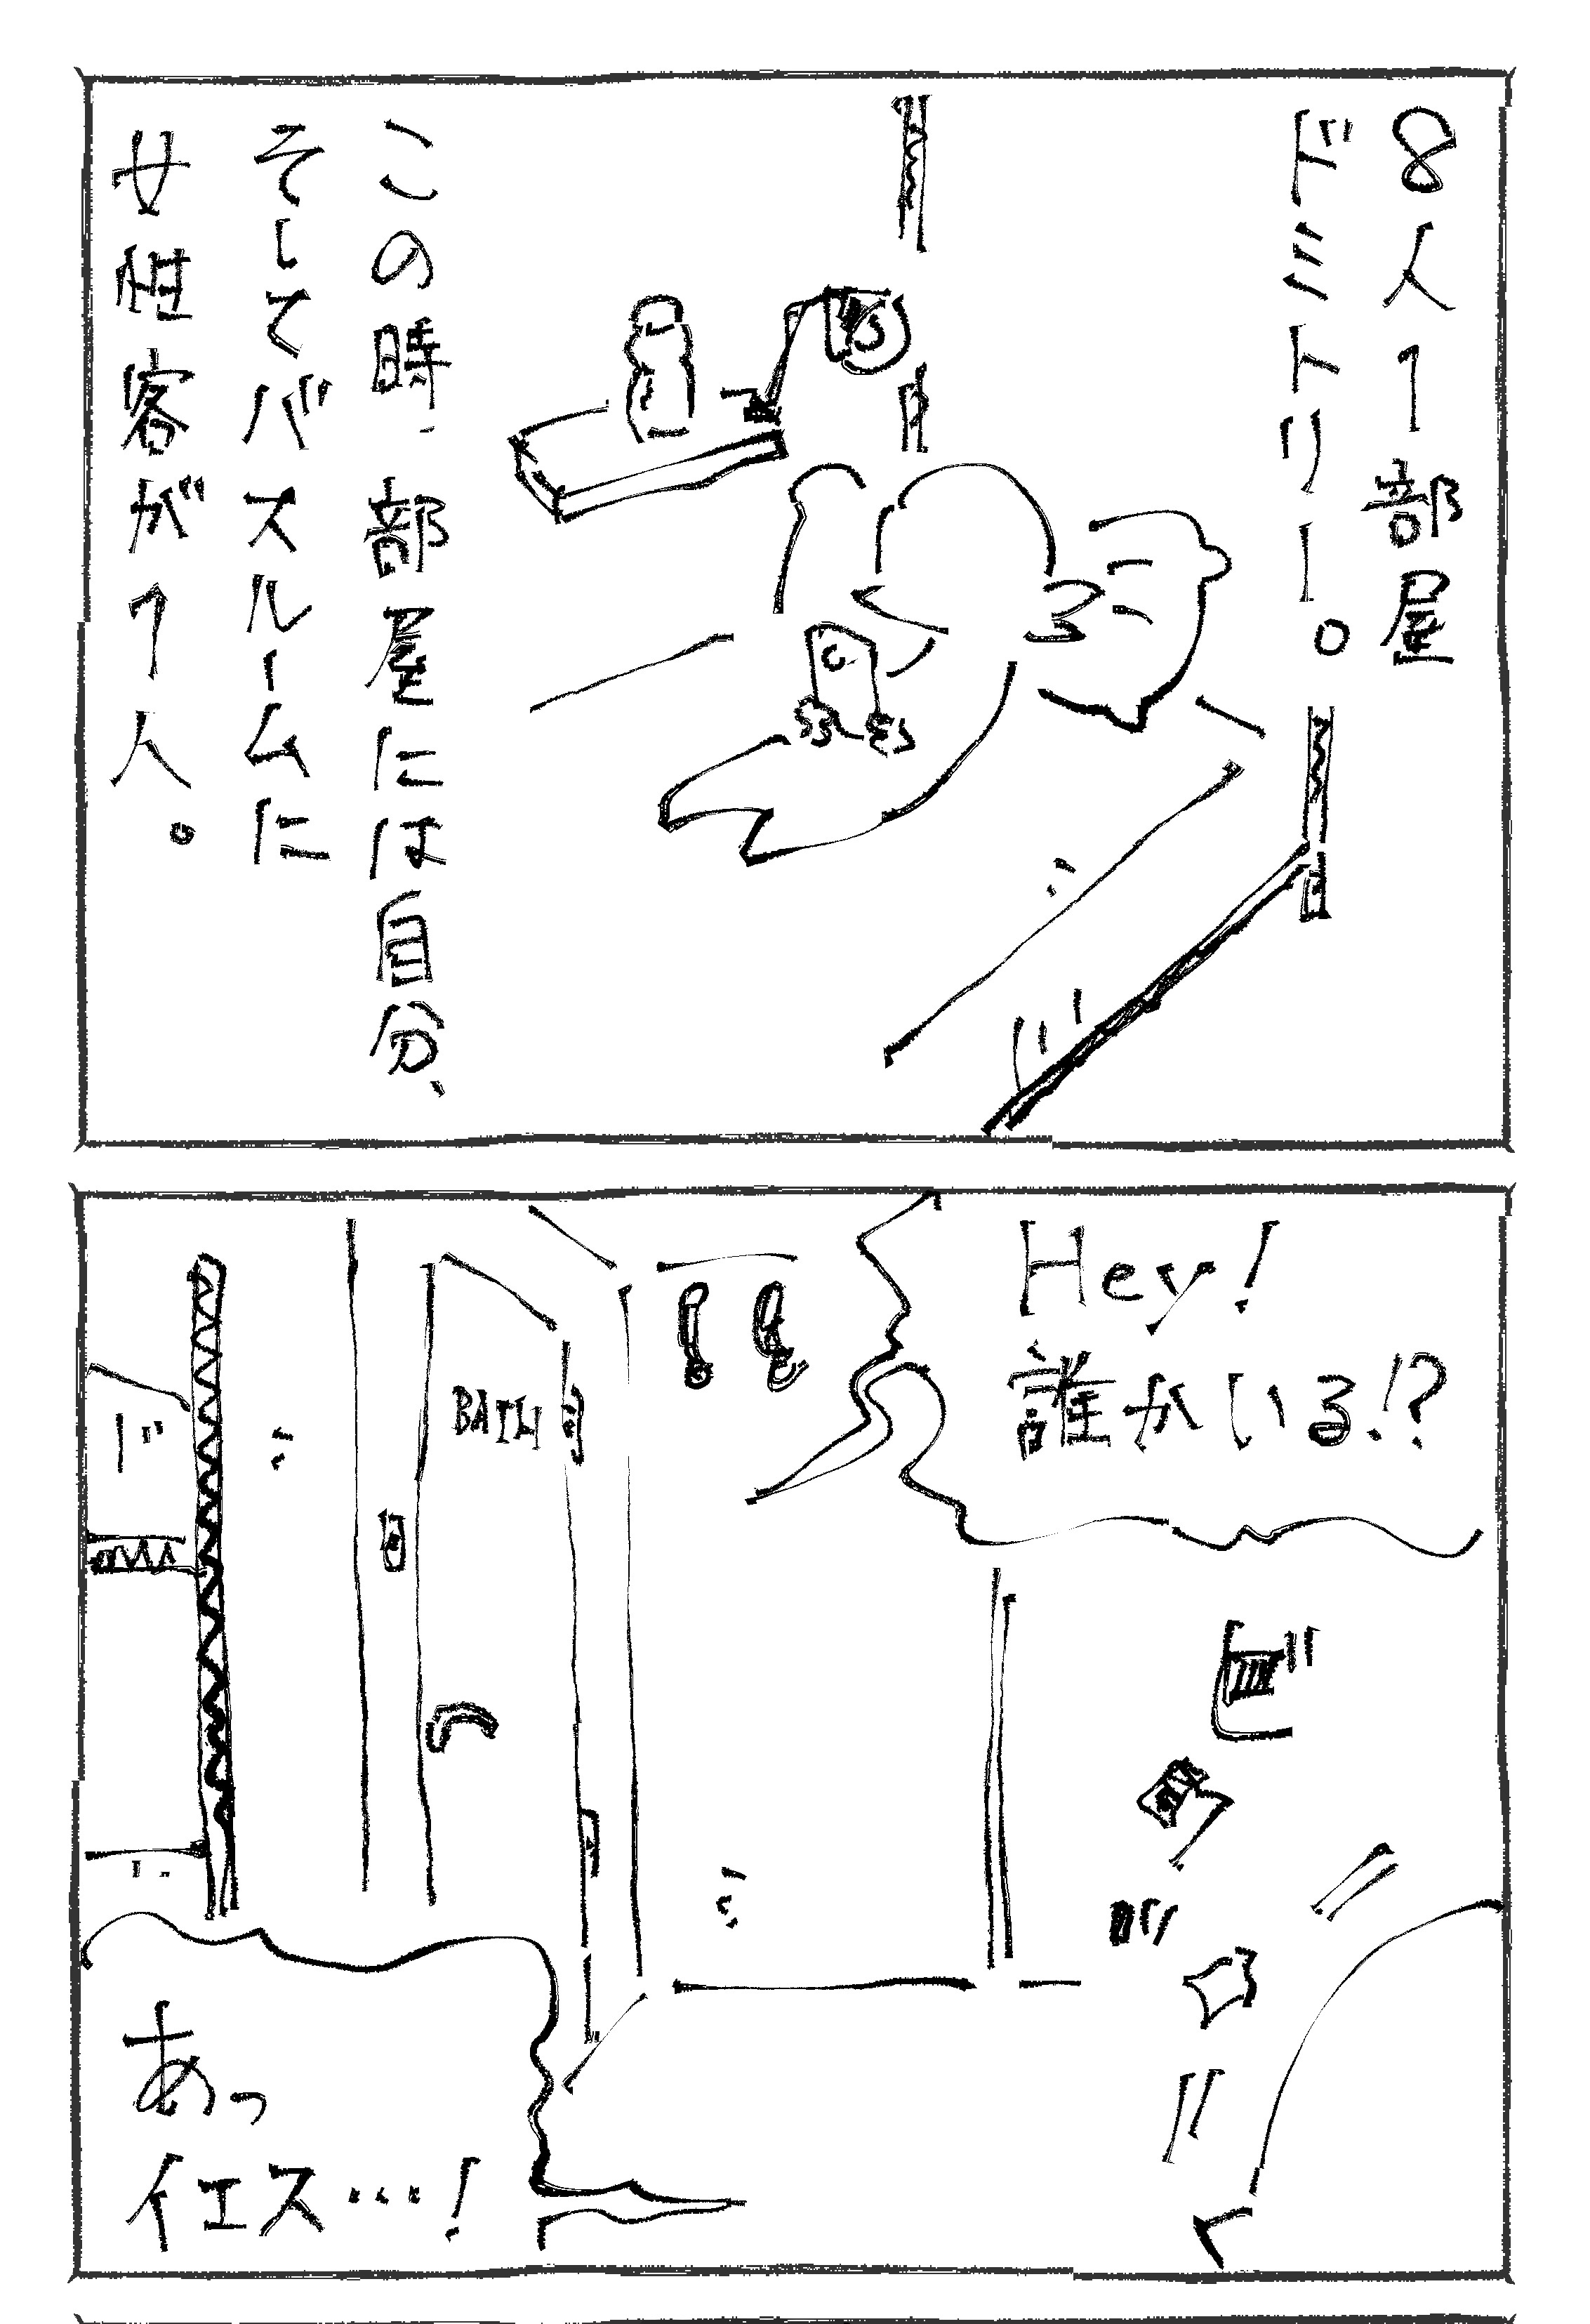 8人1部屋
ドミトリー。
この時、部屋には自分、
そしてバスルームに
女性客が1人。
Hey!
誰かいる!?
BATH
あっ
イエス…!